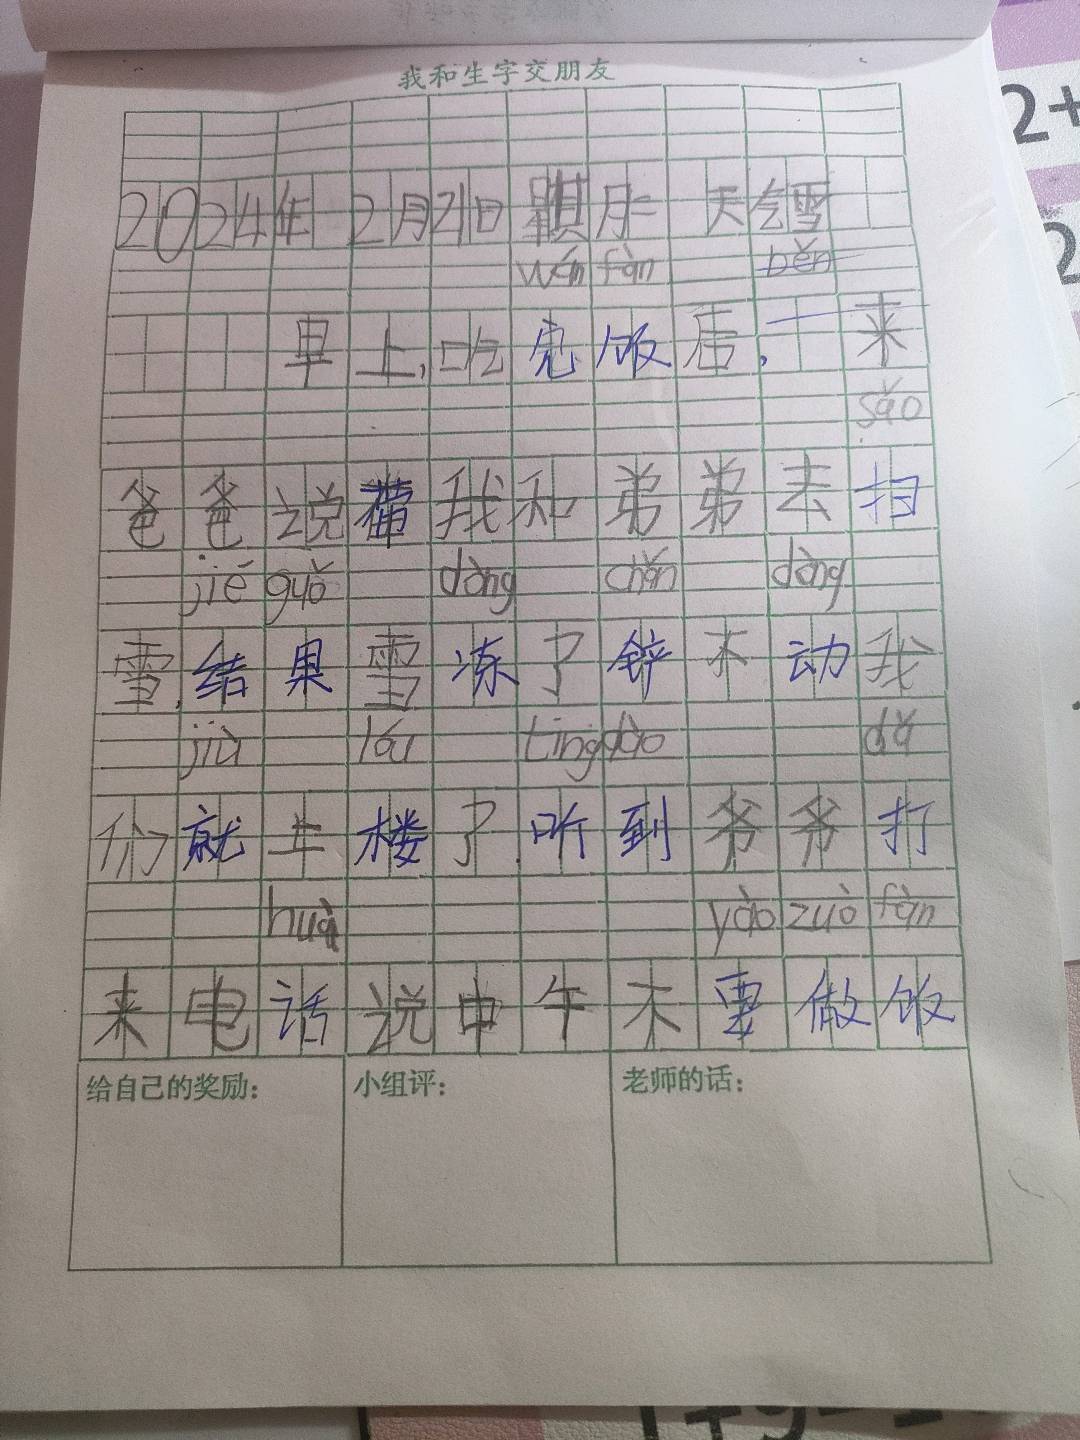 我和生字交朋友
2024年 2月21日 星期二 天气雪
wén fàn běn
早上,吃完饭后,来
sǎo
爸爸说带我和弟弟去扫
jié guǒ dòng chǎn dòng
雪,结果雪冻了铲不动我
jiù lóu tīng dào dǎ
们就上楼了.听到爷爷打
huà yào zuò fàn
来电话说中午不要做饭
给自己的奖励: 小组评: 老师的话:
2+
2
1+9-1